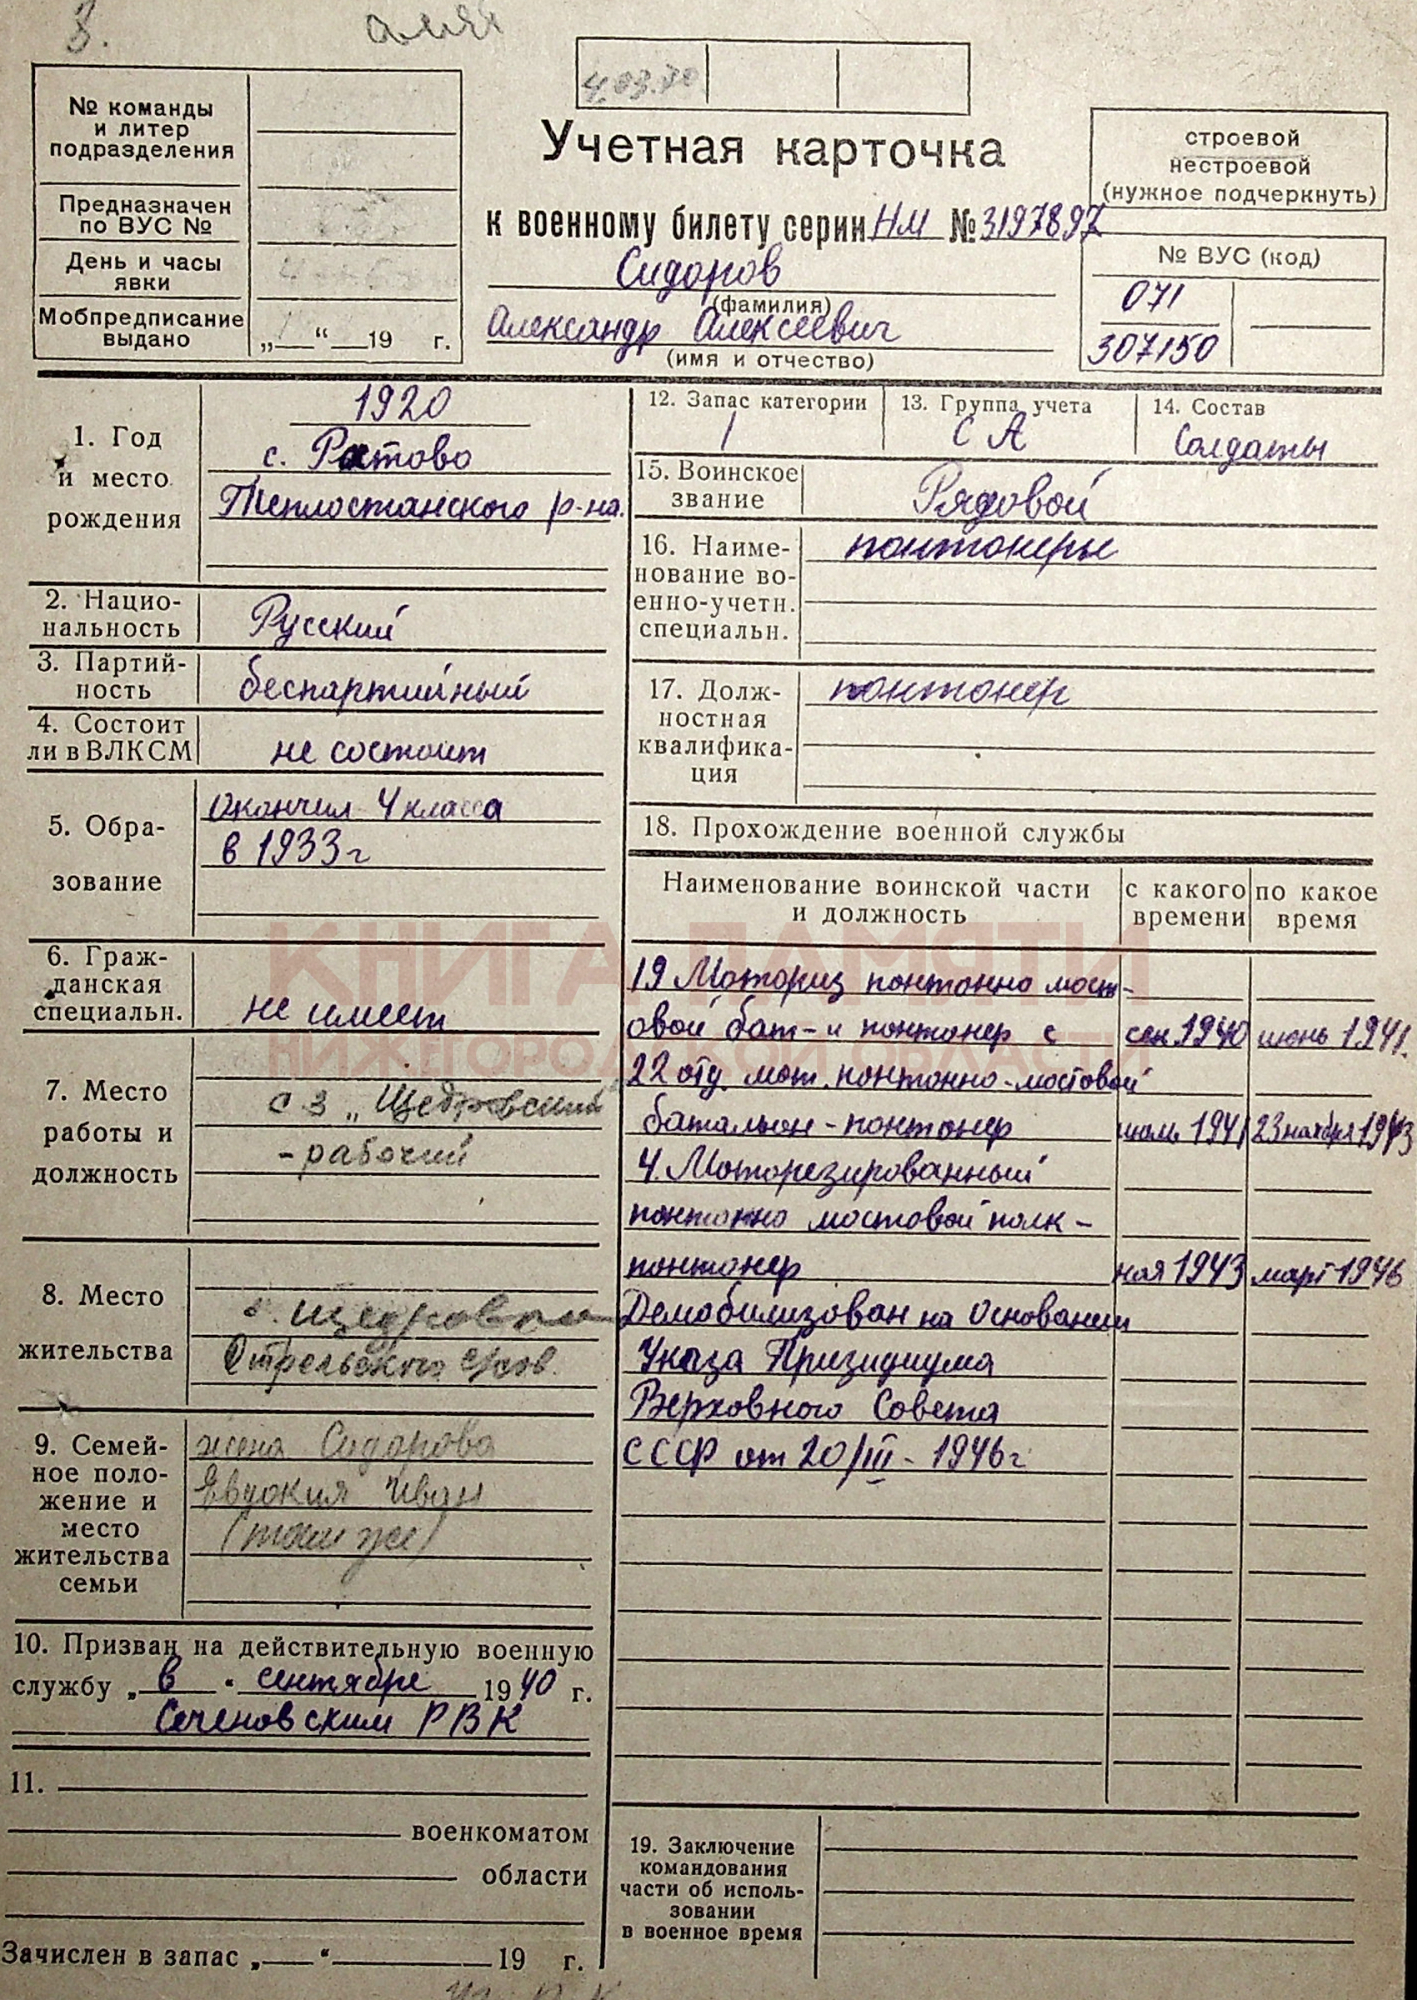 4.03.70
№ команды
и литер
подразделения
Предназначен
по ВУС №
День и часы
явки
Мобпредписание
выдано
„ “ 19 г.
Учетная карточка
к военному билету серии НМ № 3197897
Сидоров
(фамилия)
Александр Алексеевич
(имя и отчество)
строевой
нестроевой
(нужное подчеркнуть)
№ ВУС (код)
071
307150
1. Год
и место
рождения
1920
с. Ратово
Теплостанского р-на.
2. Нацио-
нальность
Русский
3. Партий-
ность
беспартийный
4. Состоит
ли в ВЛКСМ
не состоит
5. Обра-
зование
окончил 4 класса
в 1933 г
6. Граж-
данская
специальн.
не имеет
7. Место
работы и
должность
с з „Щедровский
- рабочий
8. Место
жительства
Щедровка
9. Семей-
ное поло-
жение и
место
жительства
семьи
жена Сидорова
Евдокия Иван
(там же)
10. Призван на действительную военную
службу „ в “ сентябре 1940 г.
Сеченовским РВК
11.
военкоматом
области
Зачислен в запас „ “ 19 г.
12. Запас категории
1
13. Группа учета
СА
14. Состав
Солдаты
15. Воинское
звание
Рядовой
16. Наиме-
нование во-
енно-учетн.
специальн.
понтонеры
17. Долж-
ностная
квалифика-
ция
понтонер
18. Прохождение военной службы
Наименование воинской части
и должность
с какого
времени
по какое
время
19 Моториз понтонно мост-
овой бат-н понтонер с сен 1940 июнь 1941.
22 отд. мот. понтонно-мостовой
батальон - понтонер июль 1941 23 ноября 1943
4. Моторезированный
понтонно мостовой полк -
понтонер ноя 1943 март 1946
Демобилизован на основании
Указа Призидиума
Верховного Совета
СССР от 20/III - 1946 г
19. Заключение
командования
части об исполь-
зовании
в военное время
КНИГА ПАМЯТИ
НИЖЕГОРОДСКОЙ ОБЛАСТИ